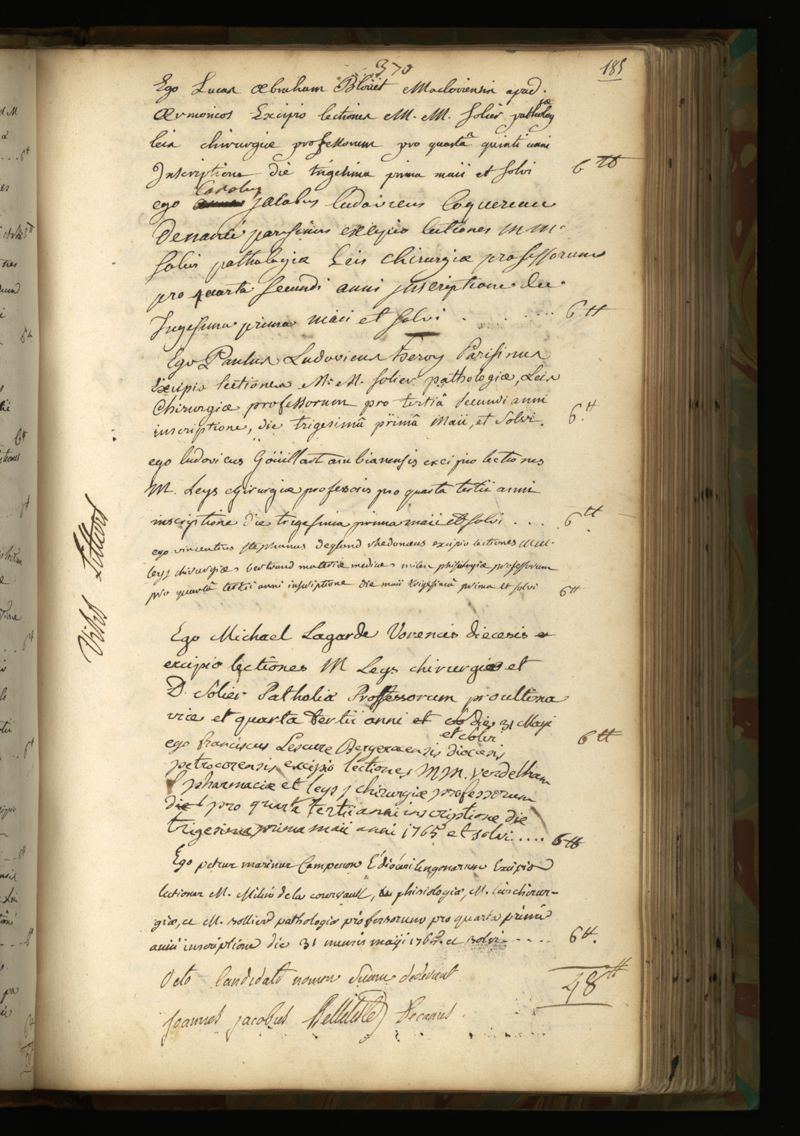 370
185
Ego Lucas Abraham Bloüet Macloviensis apud
Armoricos Excipio lectiones M. M. Solier patholog
iæ
leis chirurgiæ professorum pro quartâ quinti anni
Inscriptione die trigesima prima maii et solvi 6 tt
Carolus
ego jacobus ludovicus Coquereau
Denandé parisinus excipio lectiones m m.
Solier pathologiæ Leis chirurgiæ professorum
pro quarta secundi anni inscriptione die
Trigesima prima maii et solvi . . . . . . 6 tt
Ego Paulus Ludovicus Parisinus
Excipio lectiones M. M. Solier pathologiæ, Leis
Chirurgiæ professorum pro tertiâ secundi anni
inscriptione, die trigesimâ primâ Maii, et Solvi. 6 tt
ego ludovicus Goüillart ambianensis excipio lectiones
M. Leys chirurgiæ professoris pro quarta tertii anni
inscriptione die trigesima prima maii et solvi . . . . 6 tt
ego vincentius stephanus rhedonæus excipio lectiones MM.
leys chirurgiæ, bertrand materiæ medicæ, professorum
pro quartâ tertii anni inscriptione die maii trigesimâ prima et solvi 6 tt
Visis Litteris
Ego Michael Lagarde diecesis
excipio lectiones M Leys chirurgiæ et
D. Solier Patholiæ Proffessorum pro ultima
vice et quarta tertii anni et die 31 Mayi
et solvi 6 tt
ego franciscus Lescure Bergeracensis diocesis
petrocorensis excipio lectiones MM. verdelhan
pharmaciæ et leys chirurgiæ professorum
pro quarta tertii anni inscriptione die
trigesima prima maii anni 1765 et solvi . . . . 6 tt
Ego petrus marinus Campenon Ediocesi lingonarum Excipio
lectiones M. Milin de la courvault, phisiologiæ, M. leis chirur-
giæ, et M. Sollier pathologiæ professorum pro quarta primi
anni inscriptione die 31 mensis mayi 1765. et solvi . . . . . 6 tt.
Octo Candidati nomen suum dederunt 48 tt
Joannes jacobus Belleteste Decanus.